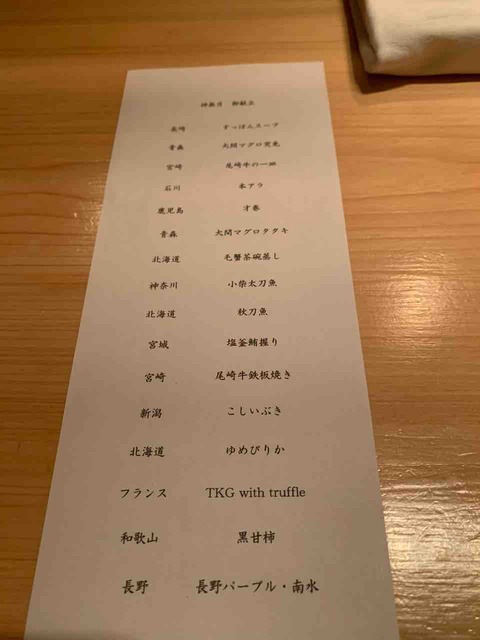 神無月 御献立
長崎 すっぽんスープ
青森 大間マグロ突先
宮崎 尾崎牛の一皿
石川 本アラ
鹿児島 才巻
青森 大間マグロタタキ
北海道 毛蟹茶碗蒸し
神奈川 小柴太刀魚
北海道 秋刀魚
宮城 塩釜鮪握り
宮崎 尾崎牛鉄板焼き
新潟 こしいぶき
北海道 ゆめぴりか
フランス TKG with truffle
和歌山 黒甘柿
長野 長野パープル・南水